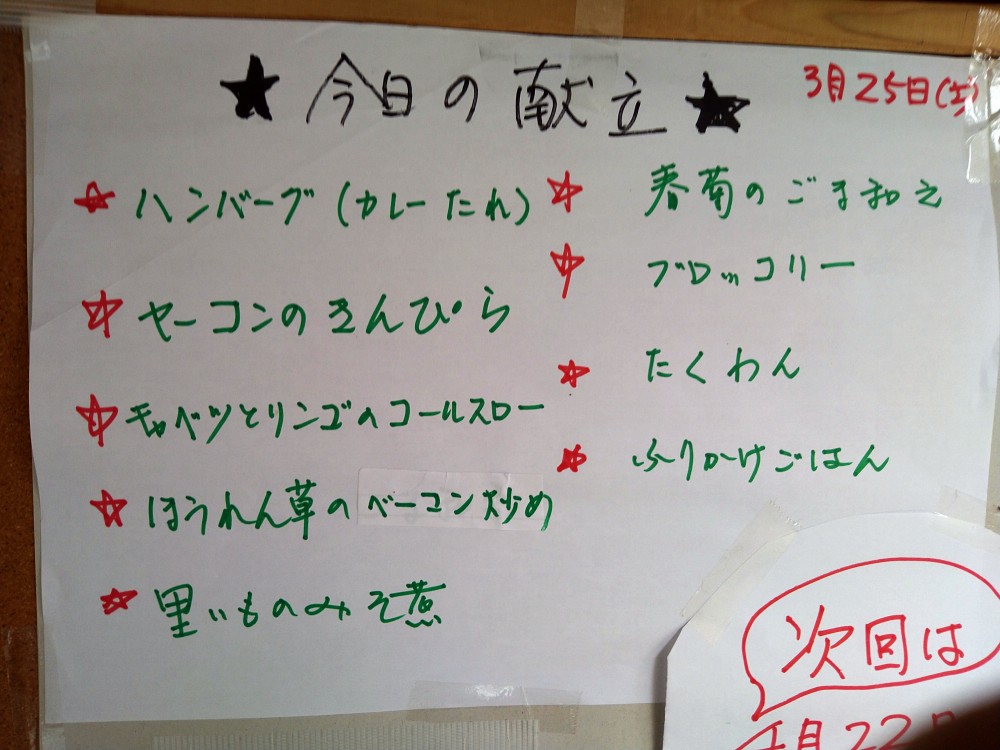 ★今日の献立★
3月25日(土)
☆ハンバーグ(カレーたれ)
☆ヤーコンのきんぴら
☆キャベツとリンゴのコールスロー
☆ほうれん草のベーコン炒め
☆里いものみそ煮
☆春菊のごま和え
☆ブロッコリー
☆たくわん
☆ふりかけごはん
次回は
月22日